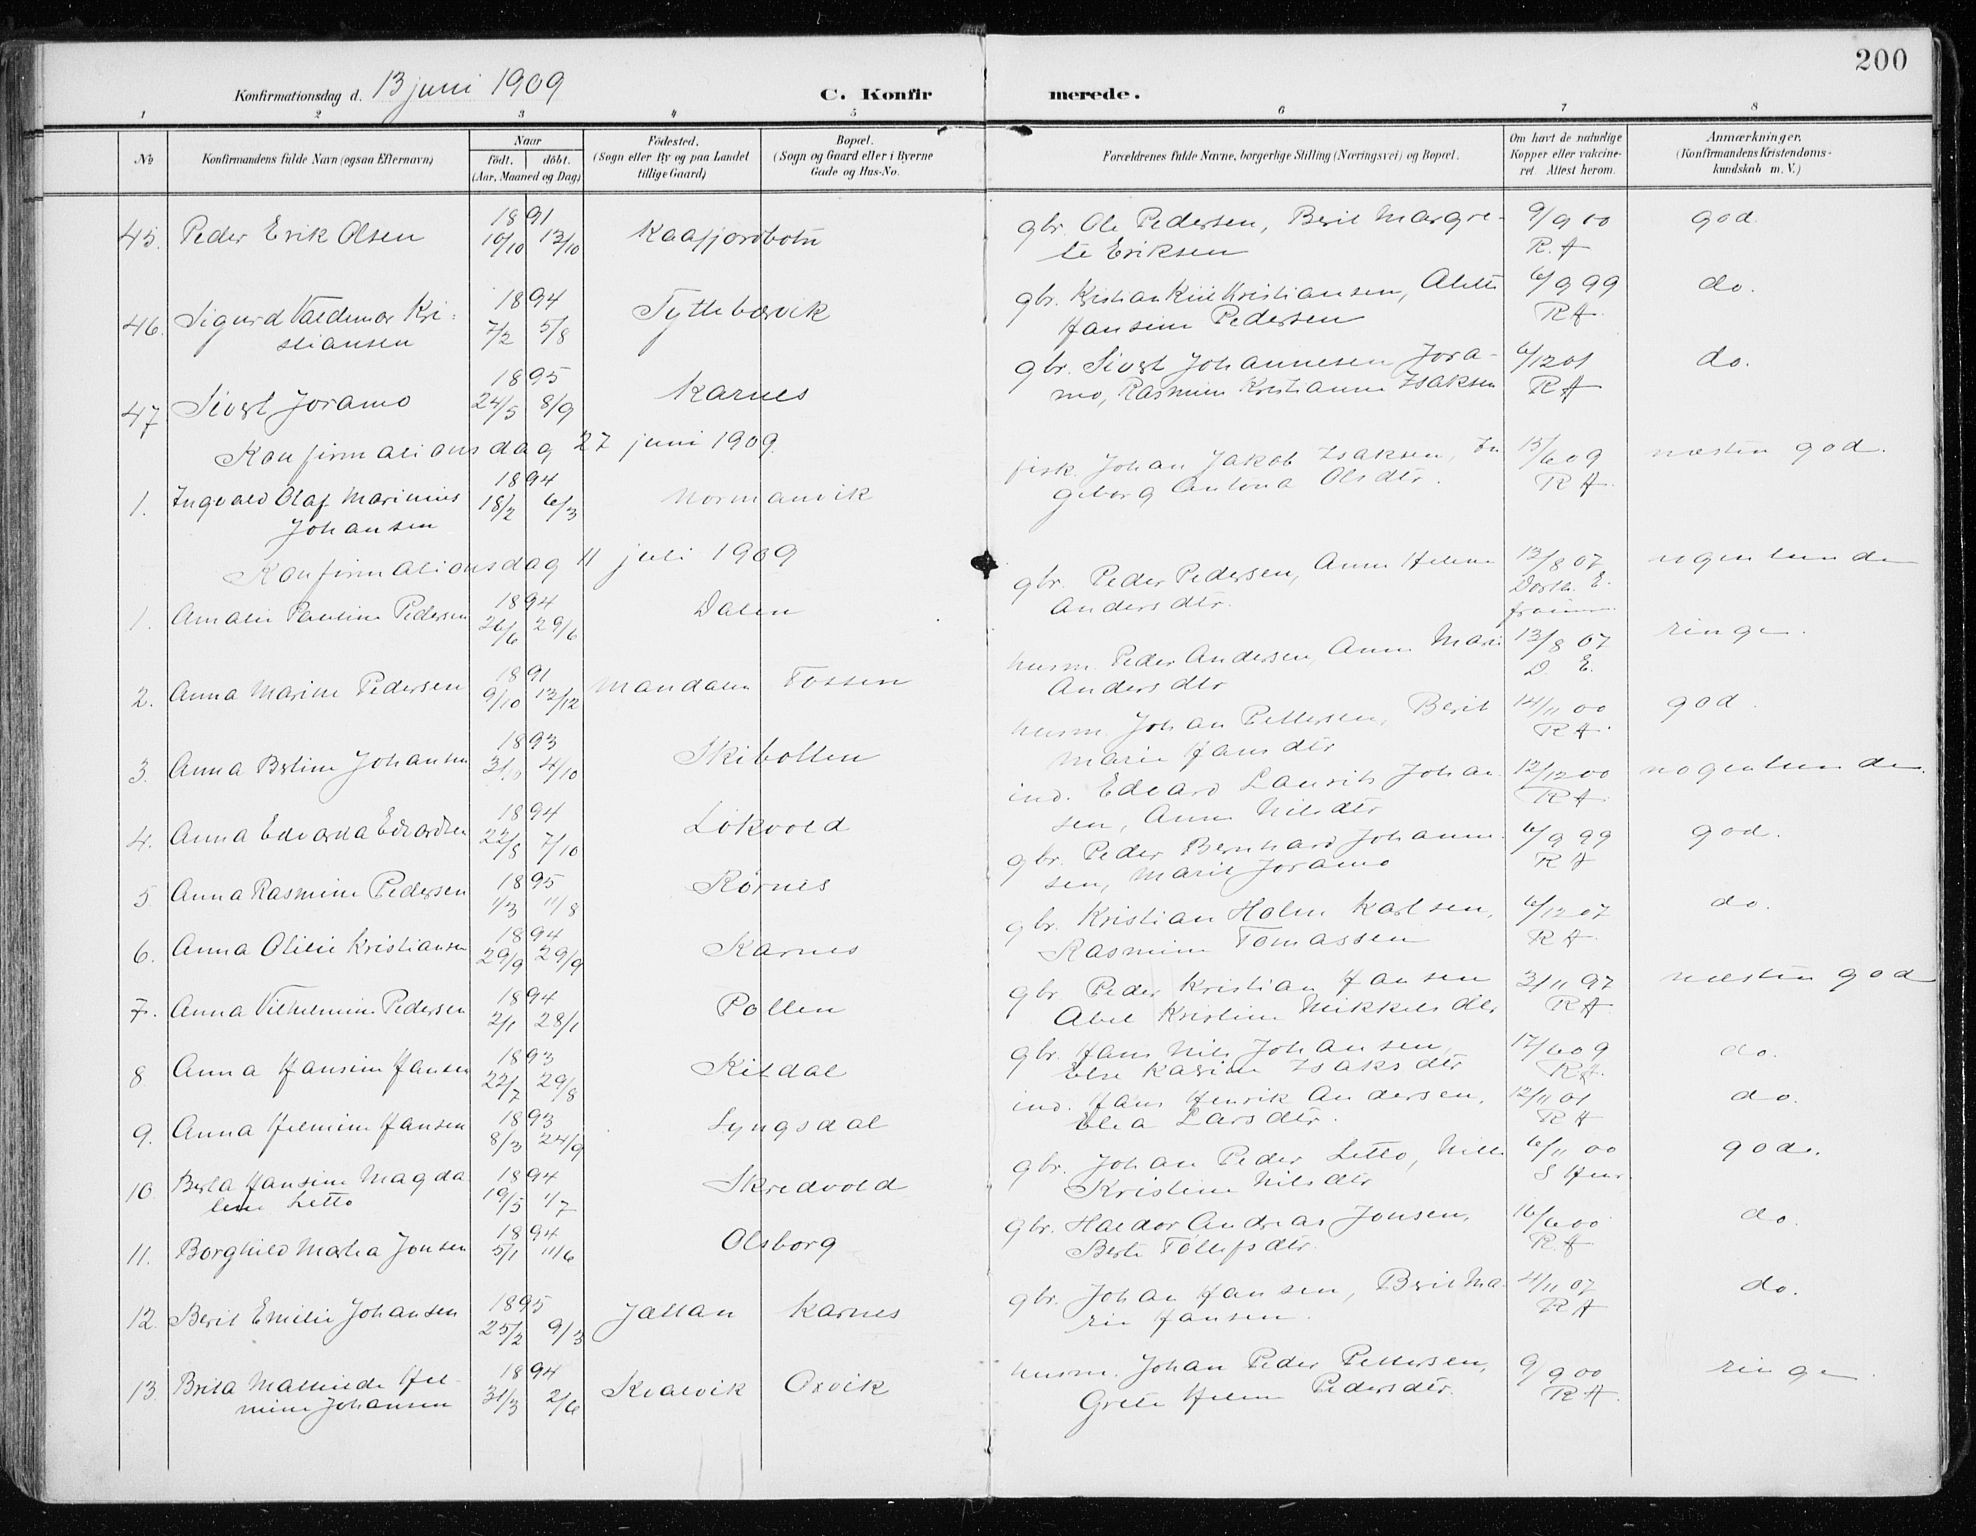 200
Konfirmationsdag d. 13 juni 1909
C. Konfirmerede.
1 2 3 4 5 6 7 8
No
Konfirmandens fulde Navn (ogsaa Efternavn)
Naar
født. døbt.
(Aar, Maaned og Dag)
Fødested.
(Sogn eller By og paa Landet
tillige Gaard)
Bopæl.
(Sogn og Gaard eller i Byerne
Gade og Hus-No.
Forældrenes fulde Navne, borgerlige Stilling (Næringsvei) og Bopæl.
Om havt de naturlige
Kopper eller vakcine-
ret. Attest herom.
Anmærkninger.
(Konfirmandens Kristendoms-
kundskab m. V.)
45. Peder Erik Olsen 1891 10/10 13/10 Kaafjordbotn gbr. Ole Pedersen, Berit Margre- 9/9 00 god.
te Eriksen R. A
46. Sigurd Valdemar Kri- 1894 7/2 5/8 Tyttebærvik gbr. Kristian Kiil Kristiansen, Alette 6/9 99 do.
stiansen Hansine Pedersen RA
47 Sivert Joramo 1895 24/5 8/9 Karnes gbr. Sivert Johannesen Jora- 6/12 01 do.
mo, Rasmine Kristianne Isaksen RA
Konfirmationsdag 27 juni 1909.
1. Ingvald Olaf Marinius 1894 18/2 6/3 Normanvik fisk. Johan Jakob Isaksen, In 15/6 09 næsten god.
Johansen geborg Antona Olsdtr. RA
Konfirmationsdag 11 juli 1909
1. Amalie Pauline Pedersen 1894 26/6 29/6 Dalen gbr. Peder Pedersen, Anne Helene 13/8 07 nogenlunde
Andersdtr. Dorth. E.
2. Anna Marine Pedersen 1891 9/10 13/12 Mandalen Fossen husm. Peder Andersen, Anne Marie 13/8 07 ringe.
Andersdtr D. E.
3. Anna Bertine Johansen 1893 4/10 Skibotten husm. Johan Pettersen, Berit 14/11 00 god.
Marie Hansdtr RA
4. Anna Edvarda Edvardsen 1894 22/8 7/10 Løkvold ind. Edvard Laurits Johan- 12/12 00 nogenlunde.
sen, Anne Nilsdtr RA
5 Anna Rasmine Pedersen 1895 1/3 11/8 Kørnes gbr. Peder Bernhard Johanne- 6/9 99 god.
sen, Marit Joramo RA
6. Anna Olilie Kristiansen 1894 29/9 29/9 Karnes gbr. Kristian Holm Karlsen, 6/12 07 do.
Rasmine Tomassen RA
7. Anna Vilhelmine Pedersen 1894 2/1 28/1 Pollen gbr Peder Kristian Hansen 3/11 97 næsten god
Abel Kristine Mikkelsdtr RA
8 Anna Hansine Hansen 1893 22/7 29/8 Kildal gbr. Hans Nils Johansen, 17/6 09 do.
Else Karine Isaksdtr RA.
9. Anna Helmine Hansen 1893 8/3 24/9 Lyngsdal ind. Hans Henrik Andersen, 12/11 01 do.
Elea Larsdtr. RA
10. Berta Hansine Magda 1894 19/5 1/7 Skredvold gbr. Johan Peder Letto, Nille 6/11 00 god.
lene Letto Kristine Nilsdtr
11. Borghild Marta Jonsen 1894 5/1 11/6 Olsborg gbr. Haldor Andreas Jonsen, 16/6 00 do.
Berte Tollefsdtr. R. A
12. Berit Emilie Johansen 1895 25/2 9/3 Jættan Karnes gbr. Johan Hansen, Berit Ma- 4/11 07 do.
rie Hansen. RA
13 Brita Mathilde Hel- 1894 31/3 2/6 Kvalvik Oxvik husm. Johan Peder Pettersen, 9/9 00 ringe
mine Johansen Grete Helene Pedersdtr. RA